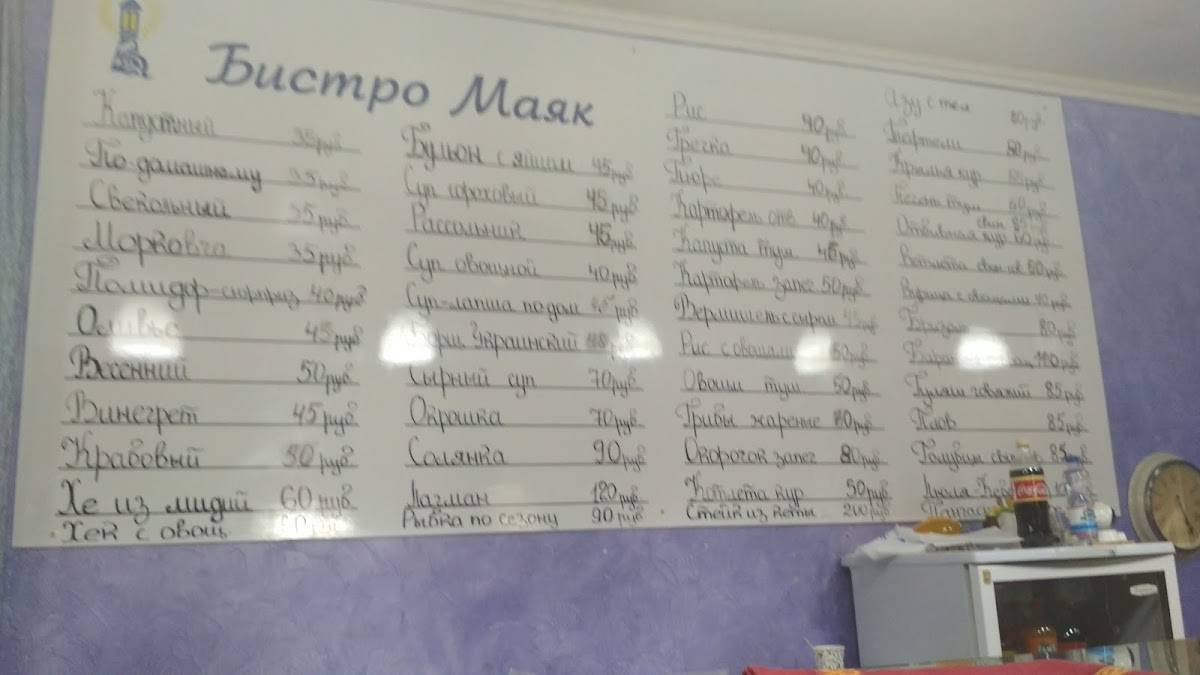 Бистро Маяк
Капустный 35руб
По-домашнему 35руб
Свекольный 35руб
Морковча 35руб
Помидор-сюрприз 40руб
Оливье 45руб
Весенний 50руб
Винегрет 45руб
Крабовый 50руб
Хе из мидий 60руб
Хек с овощ.
Бульон с яйцом 45руб
Суп гороховый 45руб
Рассольник 45руб
Суп овощной 40руб
Суп-лапша по дом
Борщ Украинский
Сырный суп 70руб
Окрошка 70руб
Солянка 90руб
Лагман 120руб
Рыбка по сезону 90руб
Рис 40руб
Гречка 40руб
Пюре 40руб
Картофель отв. 40руб
Капуста туш 45руб
Картофель запеч 50руб
Вермишель с сыром 45руб
Рис с овощами 50руб
Овощи туш 50руб
Грибы жареные 80руб
Окорочок запеч 80руб
Котлета кур 50руб
Стейк из кеты 200руб
Азу с тел 80руб
80руб
Крылья кур
туш 60руб
60руб
с овощами
80руб
110руб
Гуляш говяжий 85руб
Плов 85руб
Голубцы 85руб
Люля-Кеб
Coca-Cola